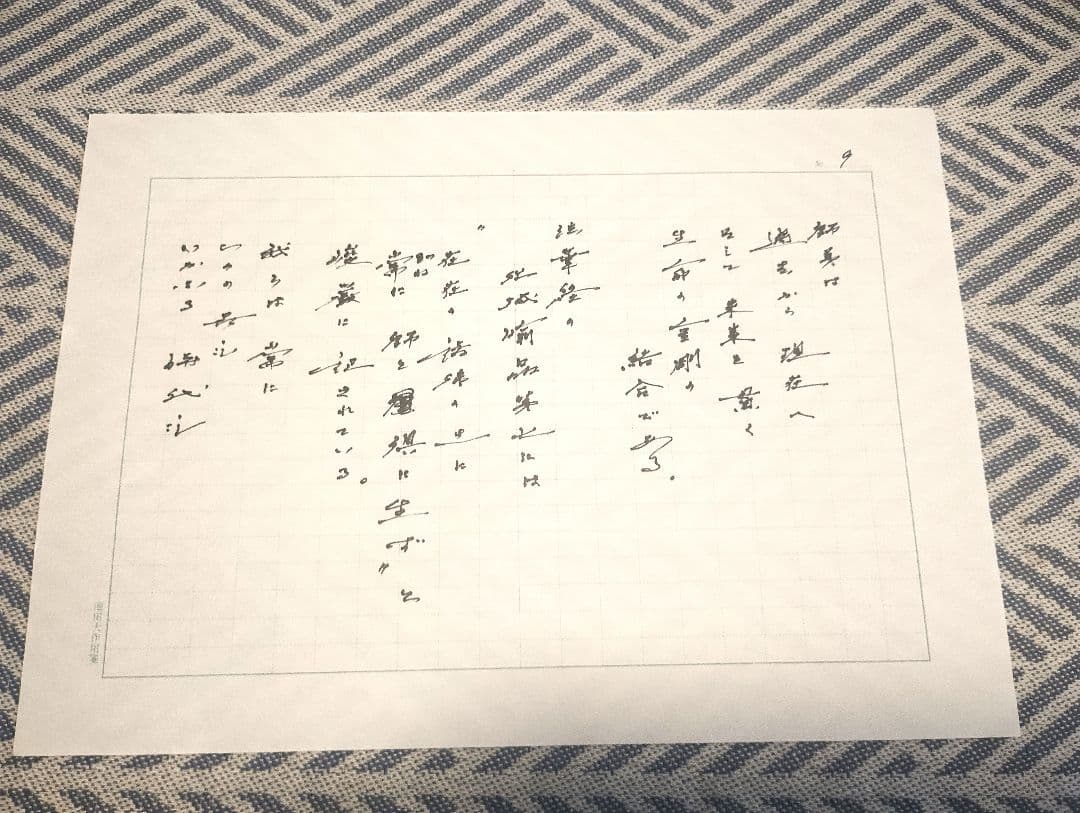 9
師弟は
過去から 現在へ
そして 未来を 貫く
生命の 金剛の
結合である。
法華経の
化城喩品第七には
"在在の 諸仏の 土に
常に 師と 倶に 生ず" と
峻厳に 記されている。
我らは 常に
いかなる 時代に
池田大作用箋